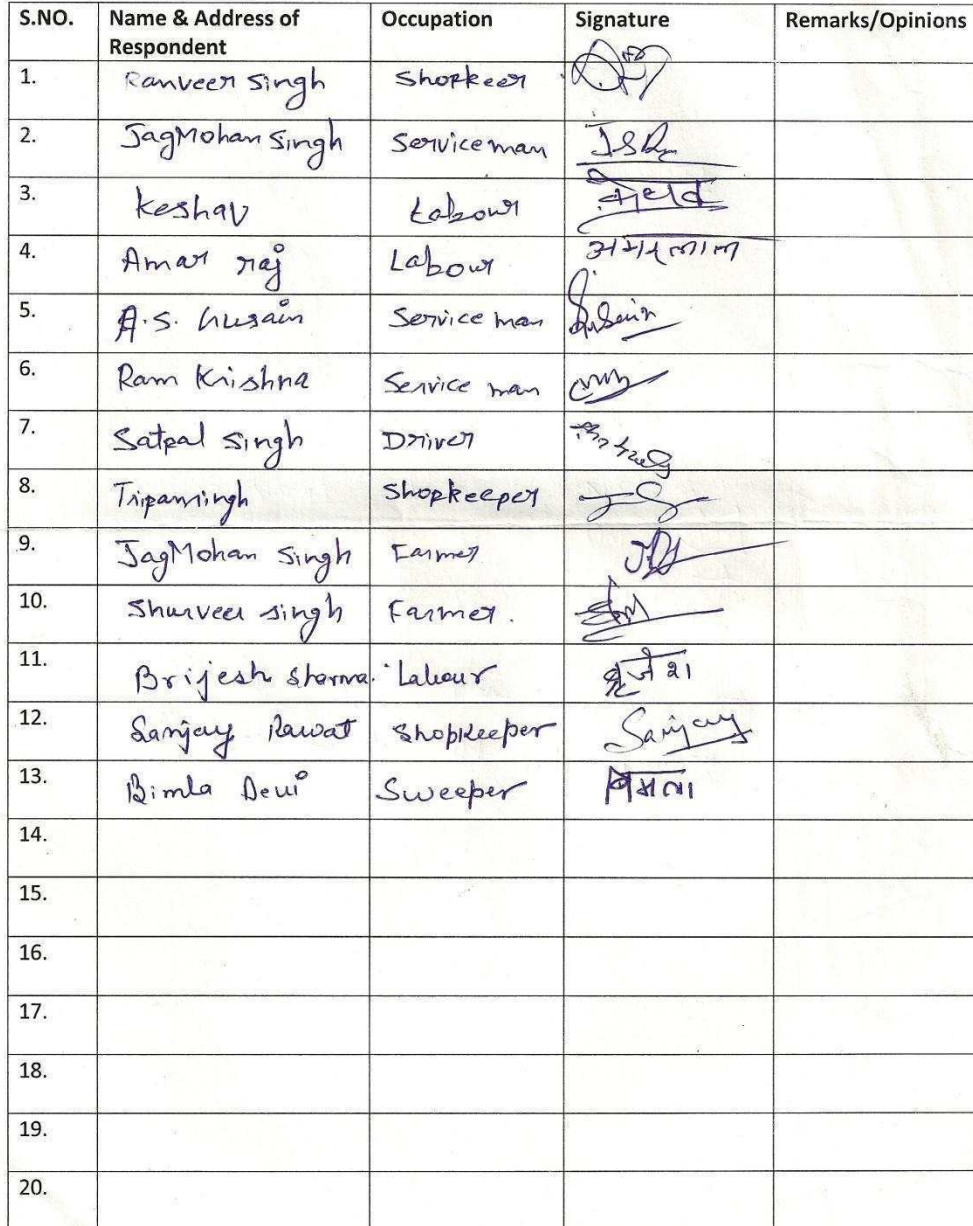 S.NO. Name & Address of Respondent Occupation Signature Remarks/Opinions
1. Ranveer Singh Shopkeer
2. JagMohan Singh Serviceman
3. Keshav Labour केशव
4. Amar raj Labour अमर लाल
5. A.S. Husain Service man Husain
6. Ram Krishna Service man
7. Satpal Singh Driver
8. Tripansingh Shopkeeper
9. JagMohan Singh Farmer
10. Shurveer singh Farmer.
11. Brijesh Sharma. Labour बृजेश
12. Sanjay Rawat Shopkeeper Sanjay
13. Bimla Devi Sweeper विमला
14.
15.
16.
17.
18.
19.
20.